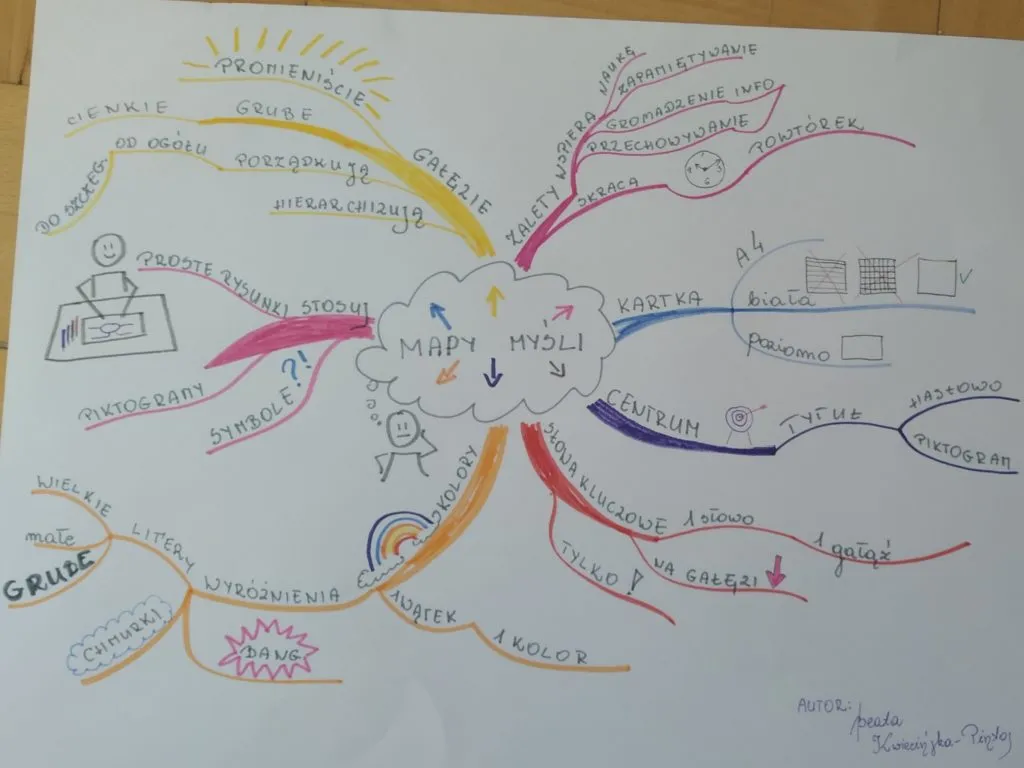 MAPY MYŚLI
ZALETY
WSPIERA
NAUKĘ
ZAPAMIĘTYWANIE
GROMADZENIE INFO
PRZECHOWYWANIE
SKRACA
POWTÓREK
KARTKA
A4
biała
poziomo
CENTRUM
TYTUŁ
HASŁOWO
PIKTOGRAM
SŁOWA KLUCZOWE
1 słowo
1 gałąź
NA GAŁĘZI
TYLKO !
KOLORY
1 WĄTEK
1 KOLOR
WYRÓŻNIENIA
LITERY
WIELKIE
małe
GRUBE
CHMURKI
BANG
STOSUJ
PROSTE RYSUNKI
PIKTOGRAMY
SYMBOLE ?!
GAŁĘZIE
PROMIENIŚCIE
GRUBE
CIENKIE
PORZĄDKUJĄ
OD OGÓŁU
DO SZCZEG.
HIERARCHIZUJĄ
AUTOR:
Beata